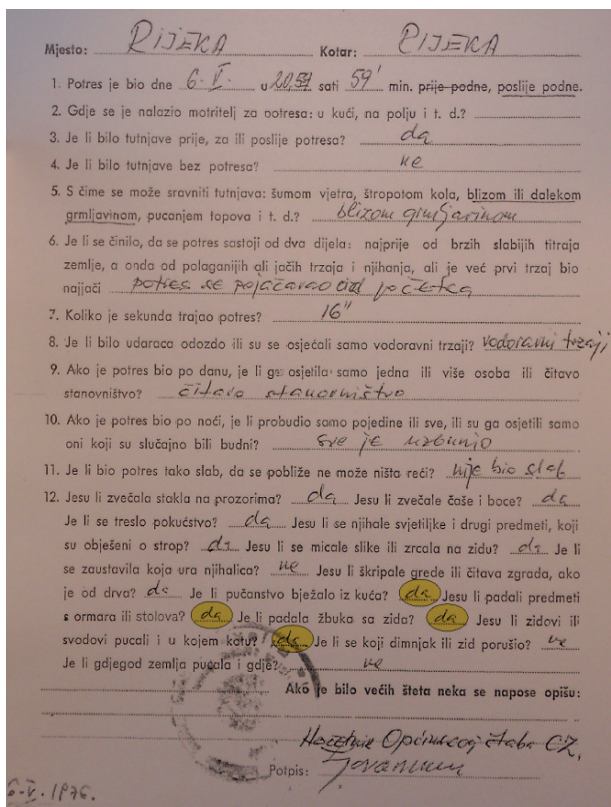 Mjesto: RIJEKA Kotar: RIJEKA
1. Potres je bio dne 6. V. u 20,59 sati 59' min. prije podne, poslije podne.
2. Gdje se je nalazio motritelj za potresa: u kući, na polju i t. d.?
3. Je li bilo tutnjave prije, za ili poslije potresa? da
4. Je li bilo tutnjave bez potresa? ne
5. S čime se može sravniti tutnjava: šumom vjetra, štropotom kola, blizom ili dalekom
grmljavinom, pucanjem topova i t. d.? blizom grmljavinom
6. Je li se činilo, da se potres sastoji od dva dijela: najprije od brzih slabijih titraja
zemlje, a onda od polaganijih ali jačih trzaja i njihanja, ali je već prvi trzaj bio
najjači potres se pojačavao od početka
7. Koliko je sekunda trajao potres? 16"
8. Je li bilo udaraca odozdo ili su se osjećali samo vodoravni trzaji? vodoravni trzaji
9. Ako je potres bio po danu, je li ga osjetila samo jedna ili više osoba ili čitavo
stanovništvo? čitavo stanovništvo
10. Ako je potres bio po noći, je li probudio samo pojedine ili sve, ili su ga osjetili samo
oni koji su slučajno bili budni? sve je uzbunio
11. Je li bio potres tako slab, da se pobliže ne može ništa reći? nije bio slab
12. Jesu li zvečala stakla na prozorima? da Jesu li zvečale čaše i boce? da
Je li se treslo pokućstvo? da Jesu li se njihale svjetiljke i drugi predmeti, koji
su obješeni o strop? da Jesu li se micale slike ili zrcala na zidu? da Je li
se zaustavila koja ura njihalica? ne Jesu li škripale grede ili čitava zgrada, ako
je od drva? da Je li pučanstvo bježalo iz kuća? da Jesu li padali predmeti
s ormara ili stolova? da Je li padala žbuka sa zida? da Jesu li zidovi ili
svodovi pucali i u kojem katu? da Je li se koji dimnjak ili zid porušio? ne
Je li gdjegod zemlja pucala i gdje? ne
Ako je bilo većih šteta neka se napose opišu:
Općinskog štaba CZ.
Potpis:
6-V. 1976.